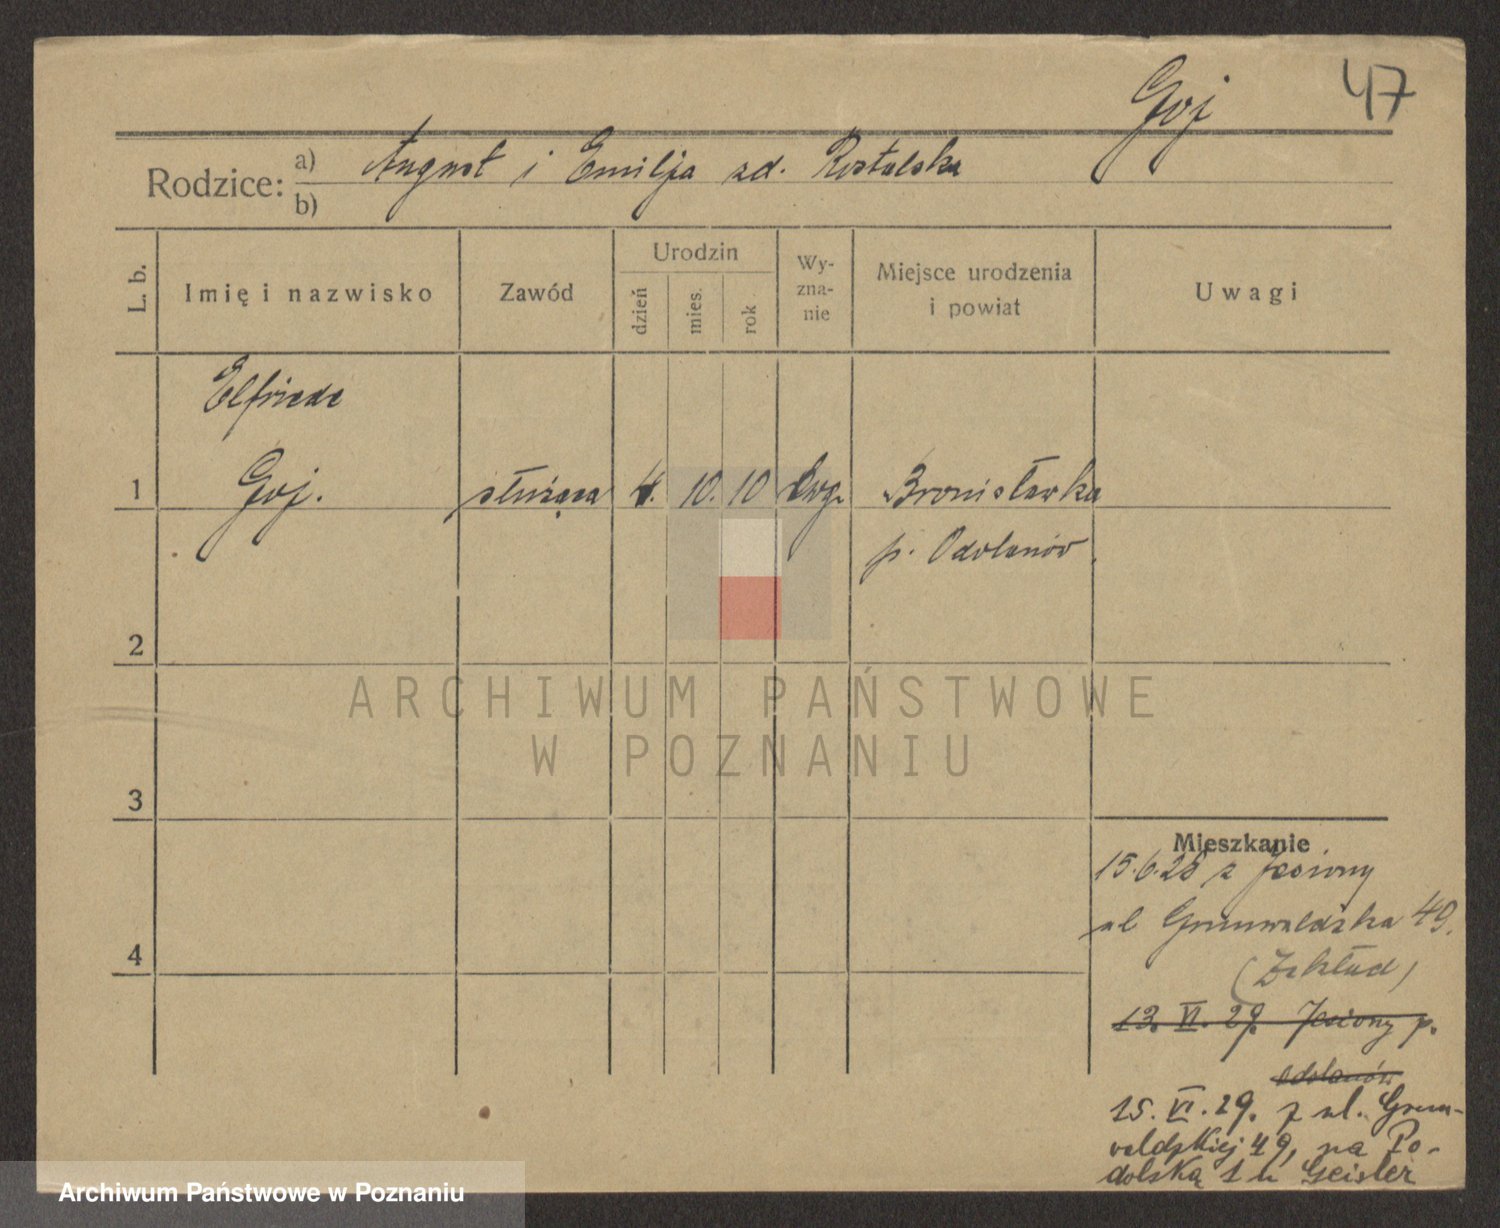 Goj 47
Rodzice: a) August i Emilja zd. Rostalska
b)
L. b. Imię i nazwisko Zawód Urodzin dzień mies. rok Wy-zna-nie Miejsce urodzenia i powiat Uwagi
Elfriede
1 Goj. służąca 4. 10. 10 Ewg. Bronisławka
p. Odolanów
2
ARCHIWUM PAŃSTWOWE
W POZNANIU
3
Mieszkanie
15.6.28 z Jesiony
ul Grunwaldzka 49.
4
(Zakład)
13. VI. 29. Jesiony p.
Odolanów
15. VI. 29. z ul. Grun-
waldzkiej 49, na Po-
dolską 1 u Geisler
Archiwum Państwowe w Poznaniu